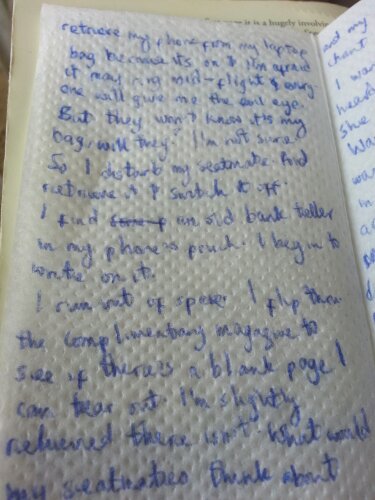 it is a hugely involving
retrieve my phone from my laptop
bag because its on & I'm afraid
it may ring mid-flight & every-
one will give me the evil eye.
But they won't know its my
bag, will they? I'm not sure.
So I disturb my seatmate. And
retrieve it & switch it off.
I find an old bank teller
in my phone's pouch. I begin to
write on it.
I run out of space. I flip thru
the complimentary magazine to
see if there's a blank page I
can tear out. I'm slightly
relieved there isn't. What would
my seatmates think about
and my
chant
I wan
head
She
wa
in